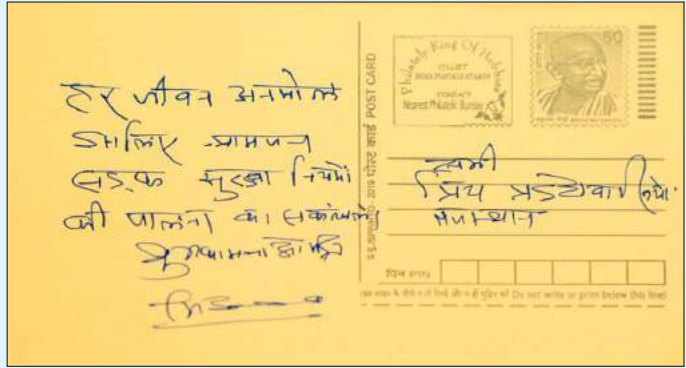 हर जीवन अनमोल
इसलिए आमजन
सड़क सुरक्षा नियमों
की पालना का संकल्प लें
शुभकामनाओं सहित
POST CARD
पोस्ट कार्ड
2019
Philately King Of Hobbies
COLLECT
INDIA POSTAGE STAMPS
CONTACT
Nearest Philatelic Bureau
50
सभी
प्रिय प्रदेशवासियों
राजस्थान
पिन PIN
इस लाइन के नीचे न तो लिखें और न ही मुद्रित करें Do not write or print below this line